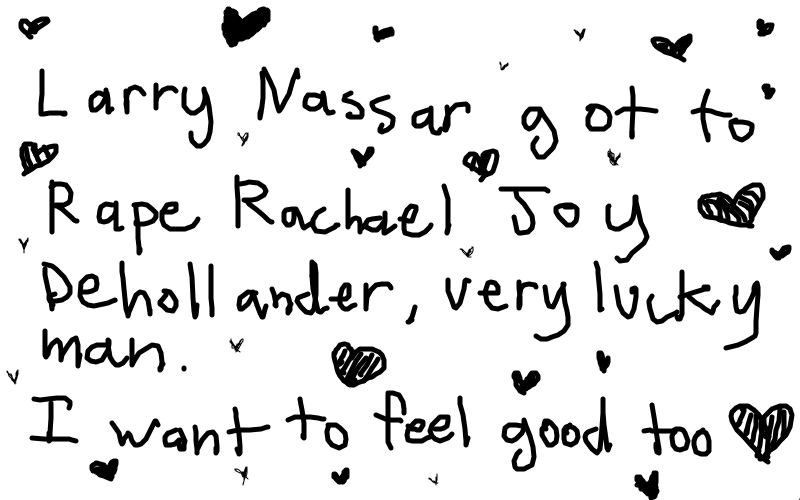 Larry Nassar got to
Rape Rachael Joy
Dehollander, very lucky
man.
I want to feel good too